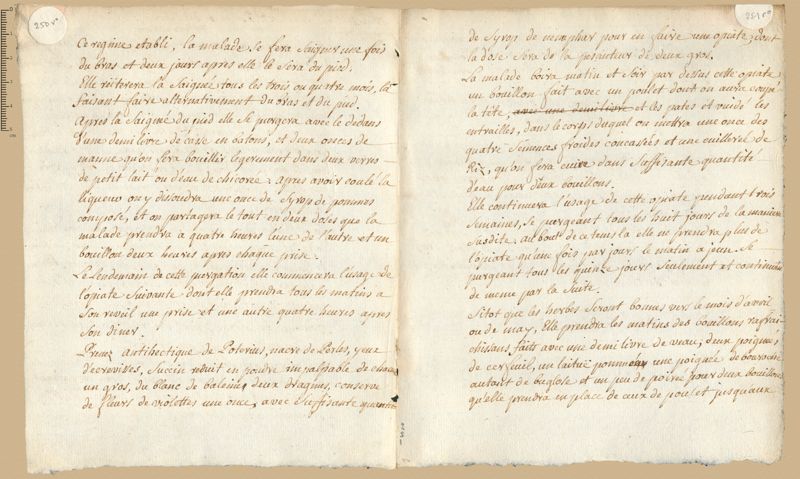 250 v°
Ce regime etabli, la malade se fera saigner une fois
du bras et deux jours apres elle le sera du pied.
Elle reiterera la saignée tous les trois ou quatre mois, la
faisant faire alternativement du bras et du pied.
Apres la saignée du pied elle se purgera avec le dedans
d'une demi livre de casse en batons, et deux onces de
manne qu'on fera bouillir legerement dans deux verres
de petit lait ou d'eau de chicorée. apres avoir coulé la
liqueur on y disoudra une once de syrop de pommes
composé, et on partagera le tout en deux doses que la
malade prendra à quatre heures l'une de l'autre et un
bouillon deux heures apres chaque prise.
Le lendemain de cette purgation elle commencera l'usage de
l'opiate suivante dont elle prendra tous les matins a
son reveil une prise et une autre quatre heures apres
son diner.
Prenez antihectique de Poterius, nacre de Perles, yeux
d'ecrevisses, succin reduit en poudre impalpable de chacun
un gros, du blanc de baleine deux dragmes, conserve
de fleurs de violettes une once, avec suffisante quantité
251 r°
de syrop de nenuphar pour en faire une opiate, dont
la dose sera de la pesanteur de deux gros.
La malade boira matin et soir par dessus cette opiate
un bouillon fait avec un poulet dont on aura coupé
la tête, avec une demi livre et les pates et vuidé les
entrailles, dans le corps duquel on mettra une once des
quatre semences froides concassées et une cuillerée de
Riz, qu'on fera cuire dans suffisante quantité
d'eau pour deux bouillons.
Elle continuera l'usage de cette opiate pendant trois
semaines, se purgeant tous les huit jours de la maniere
susdite. au bout de ce tems la elle n'en prendra plus de
l'opiate qu'une fois par jours le matin a jeun. se
purgeant tous les quinze jours seulement et continuera
de meme par la suite.
Sitot que les herbes seront bonnes vers le mois d'avril
ou de may, Elle prendra les matins des bouillons rafrai-
chissans faits avec une demi livre de veau, deux poignées
de cerfeuil, un laitue pommée une poignée de bourache
autant de buglose et un peu de poirée pour deux bouillons
qu'elle prendra en place de ceux de poulet et jusqu'aux